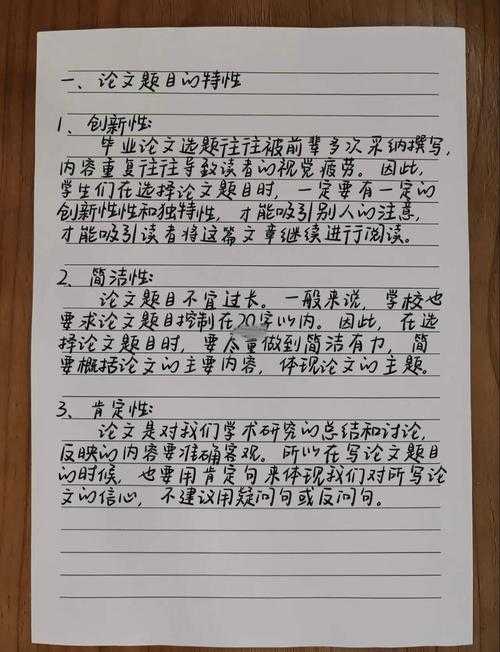 一、论文题目的特性
1、创新性:
毕业论文选题往往被前辈多次采纳撰写,
内容重复往往导致读者的视觉疲劳。因此,
学生们在选择论文题目时，一定要有一定的
创新性性和独特性，才能吸引别人的注意,
才能吸引读者将这篇文章继续进行阅读。
2、简洁性:
论文题目不宜过长。一般来说，学校也
要求论文题目控制在20字以内。因此，在选
择论文题目时，要尽量做到简洁有力，简
要概括论文的主要内容，体现论文的主题。
3、肯定性:
论文是对我们学术研究的总结和讨论,
反映的内容要准确客观。所以在写论文题目
的时候，也要用肯定句来体现我们对所写论
文的信心，不建议用疑问句或反问句。